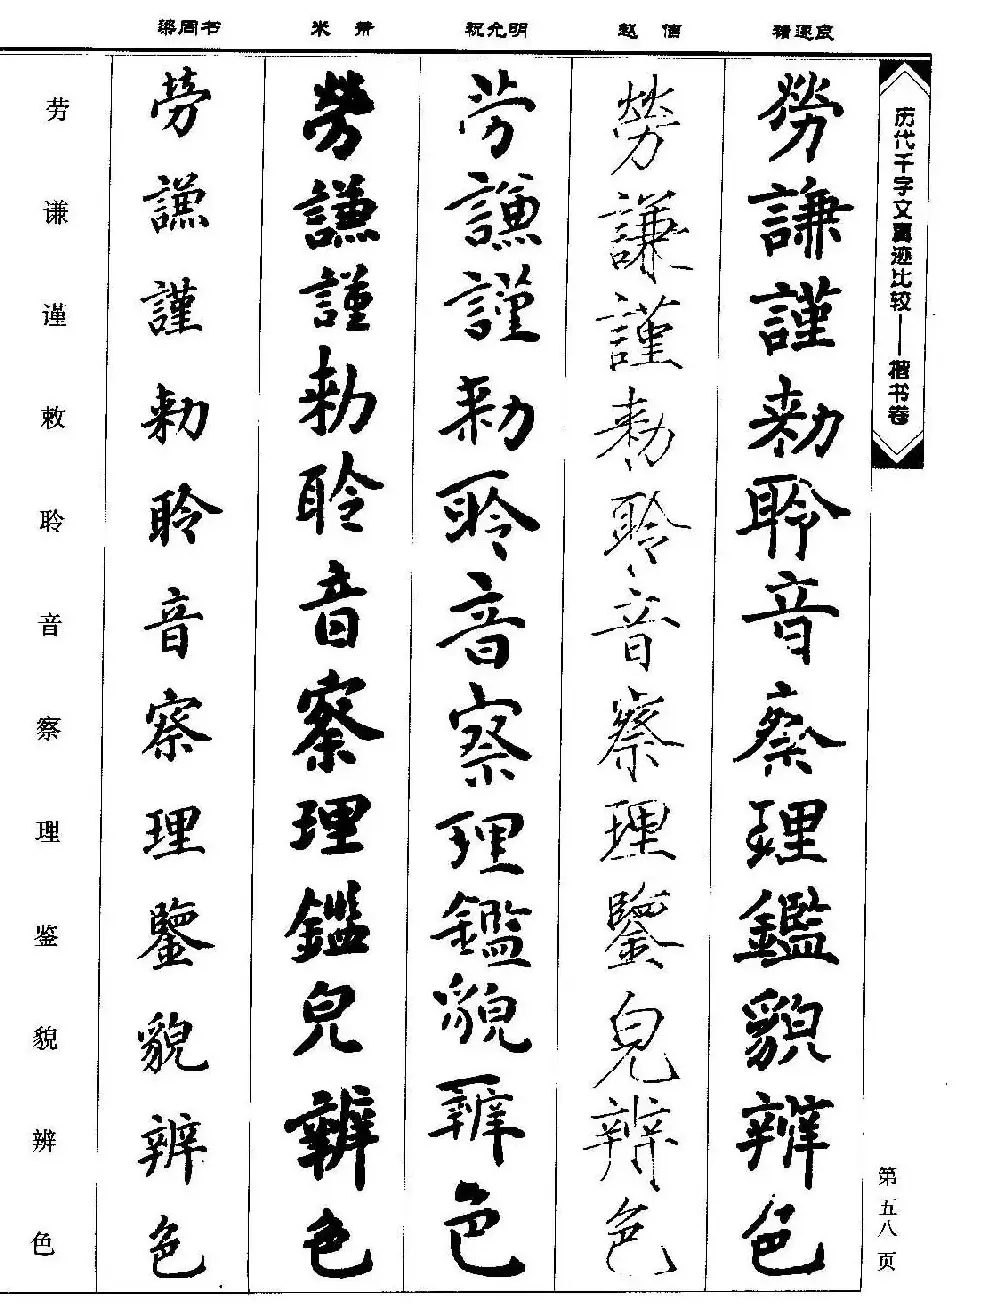 历代千字文真迹比较——楷书卷
第五八页
褚遂良
勞謙謹勑聆音察理鑑貌辨色
赵佶
勞謙謹勑聆音察理鑒皃辨色
祝允明
劳謙謹勑聆音察理鑑貌辨色
米芾
勞謙謹勑聆音察理鑑皃辨色
梁同书
劳謙謹勑聆音察理鑒貌辨色
劳谦谨敕聆音察理鉴貌辨色